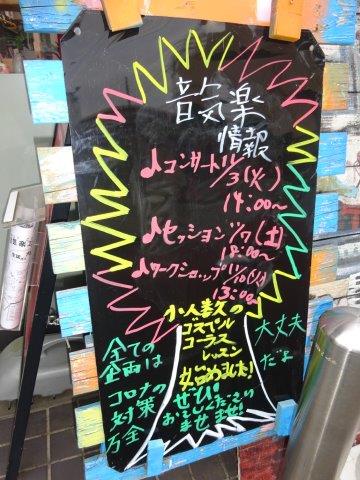 音気楽
情報
♪コンガートル
11/3(火)
14:00〜
♪セッション11/7(土)
18:00〜
♪ワークショップ11/10(火)
13:00〜
小人数の
ゴスペル
コーラス
レッスン
始めました!
ぜひ!
おこしくださいませませ!!
大丈夫
だよ
全ての
企画は
コロナの
対策
万全